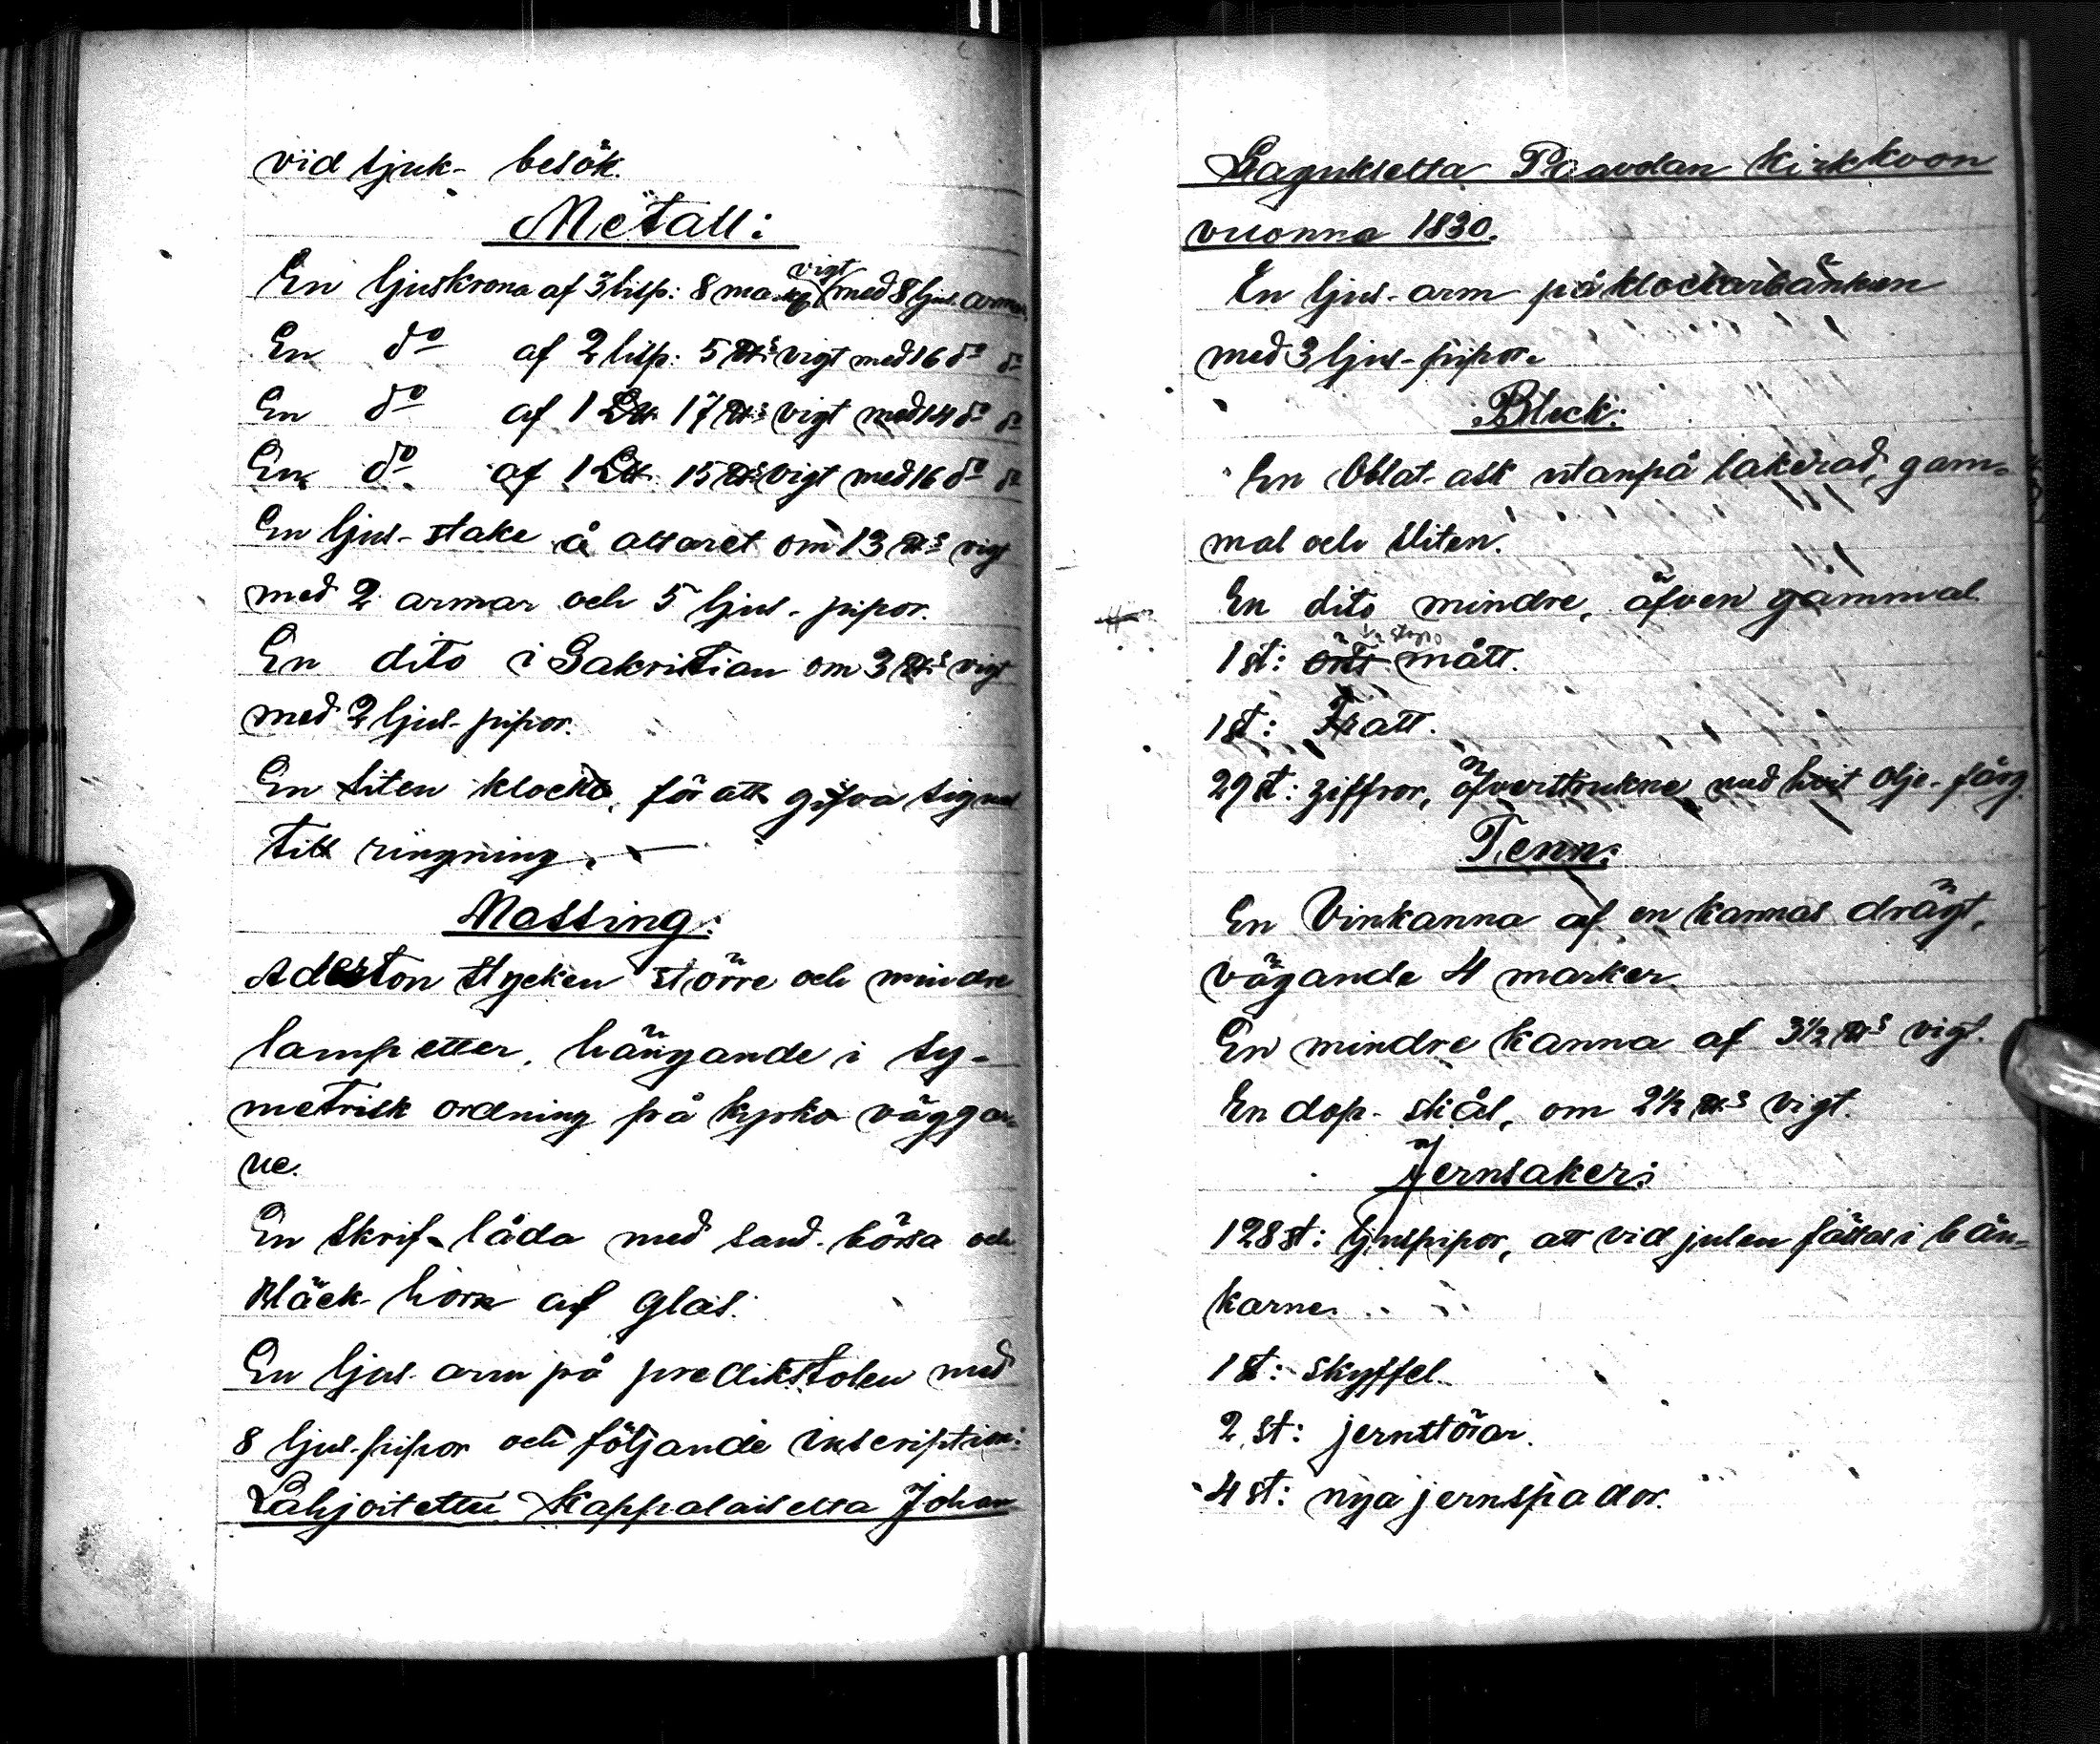 vid sjuk- besök.
Metall:
En ljuskrona af 3 lisp: 8 ma. vigt med 8 ljus armar
En do af 2 lisp: 5 ℔s vigt med 16 do do
En do af 1 L℔ 17 ℔s vigt med 14 do do
En do af 1 L℔ 15 ℔s vigt med 16 do do
En ljus-stake å altaret om 13 ℔s vigt
med 2 armar och 5 ljus-pipor.
En dito i Sakristian om 3 ℔s vigt
med 2 ljus-pipor.
En liten klocka, för att gifva signal
till ringning. —
Messing:
Aderton stycken större och mindre
lampetter, hängande i sy-
metrisk ordning på kyrko väggar-
ne.
En skrif-låda med sand-börsa och
Bläck-horn af glas.
En ljus-arm på predikstolen med
8 ljus-pipor och följande inscription:
Lahjoitettu Kappalaiselta Johan
Laguksetta Paavolan Kirkkoon
vuonna 1830.
En ljus-arm på klockarbänken
med 3 ljus-pipor.
Bleck:
En Oblat-ask utanpå lakerad, gam-
mal och sliten.
En dito mindre, äfven gammal
1 st: mått.
1 st: Tratt.
29 st: ziffror, öfverstrukne med hvit olje-färg.
Tenn:
En Vinkanna af en kannas drägt,
vägande 4 marker.
En mindre kanna af 3½ ℔s vigt.
En dop-skål, om 2½ ℔s vigt.
Jernsaker:
128 st: ljuspipor, att vid julen fästas i bän-
karne.
1 st: skyffel.
2 st: jernstörar.
4 st: nya jernspador.